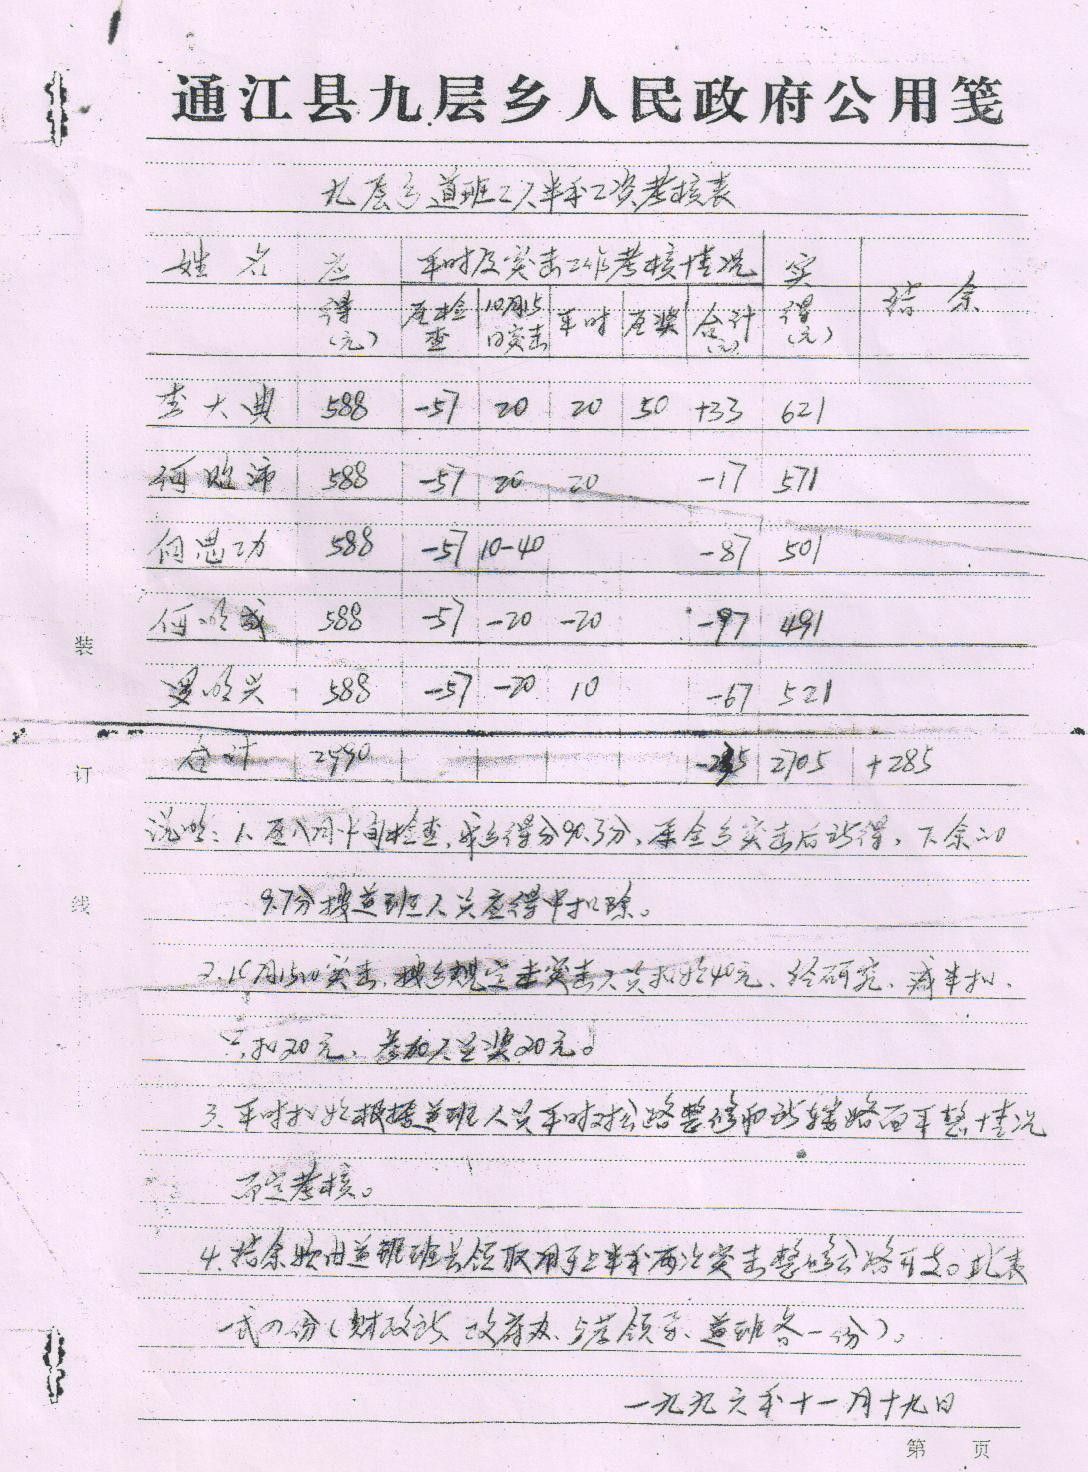 通江县九层乡人民政府公用笺
九层乡道班工人半年工资考核表
姓名 应得(元) 平时及突击工作考核情况 实得(元) 结余
区检查 10月15日突击 平时 区奖 合计(元)
李大典 588 -57 20 20 50 +33 621
何 588 -57 20 20 -17 571
何思功 588 -57 10-40 -87 501
何 成 588 -57 -20 -20 -97 491
兴 588 -57 -20 10 -67 521
合计 2990 -235 2705 +285
说明：1.区八月下旬检查，我乡得分90.3分，系全乡突击后所得，下余的
9.7分按道班人员应得中扣除。
2.10月15日突击，按乡规定未突击人员扣款40元、经研究、减半扣、
只扣20元、参加人员奖20元。
3.平时扣款根据道班人员平时对公路整修和所辖路面平整情况
而定考核。
4.结余款由道班班长领取用于上半年两次突击整修公路开支。此表
一式四份（财政所、政府办、乡 领导、道班各一份）。
一九九六年十一月十九日
装
订
线
第 页